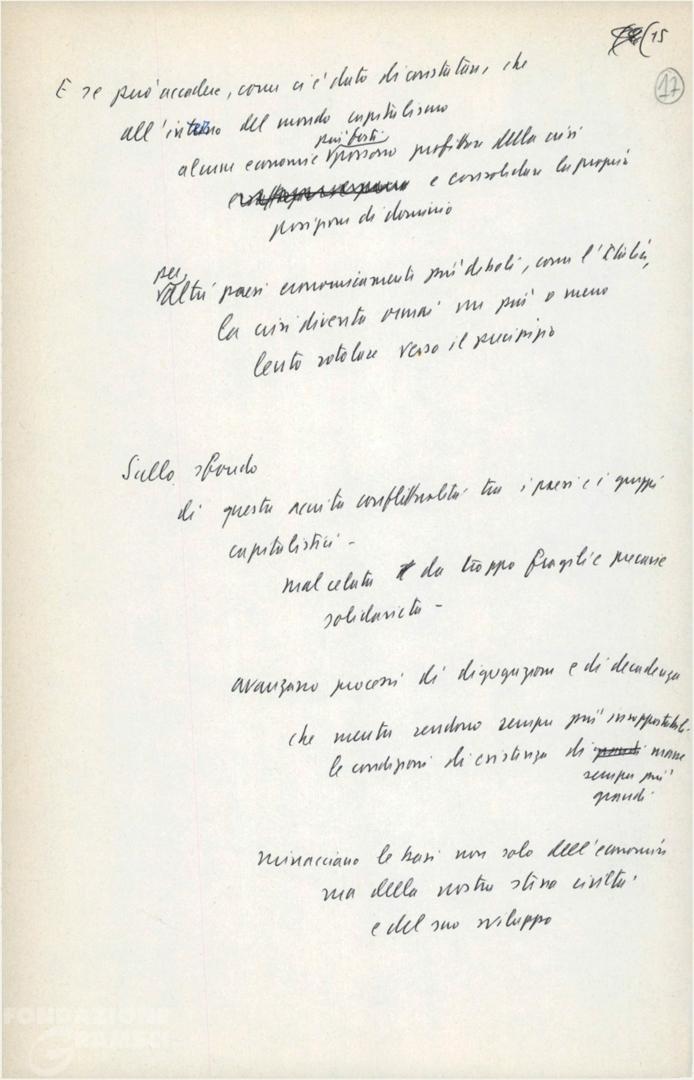 15
17
E se può accadere, come ci è dato di constatare, che
all'interno del mondo capitalismo
alcune economie più forti possono profittare della crisi
e consolidare la propria
posizione di dominio
per altri paesi economicamente più deboli, come l'Italia,
la crisi diventa ormai un più o meno
lento rotolare verso il precipizio
Sullo sfondo
di questa acuita conflittualità tra i paesi e i gruppi
capitalistici -
mal celata da troppo fragili e precarie
solidarietà -
avanzano processi di disgregazione e di decadenza
che mentre rendono sempre più insopportabi-
le condizioni di esistenza di masse
sempre più
grandi
minacciano le basi non solo dell'economia
ma della nostra stessa civiltà
e del suo sviluppo
FONDAZIONE
GRAMSCI